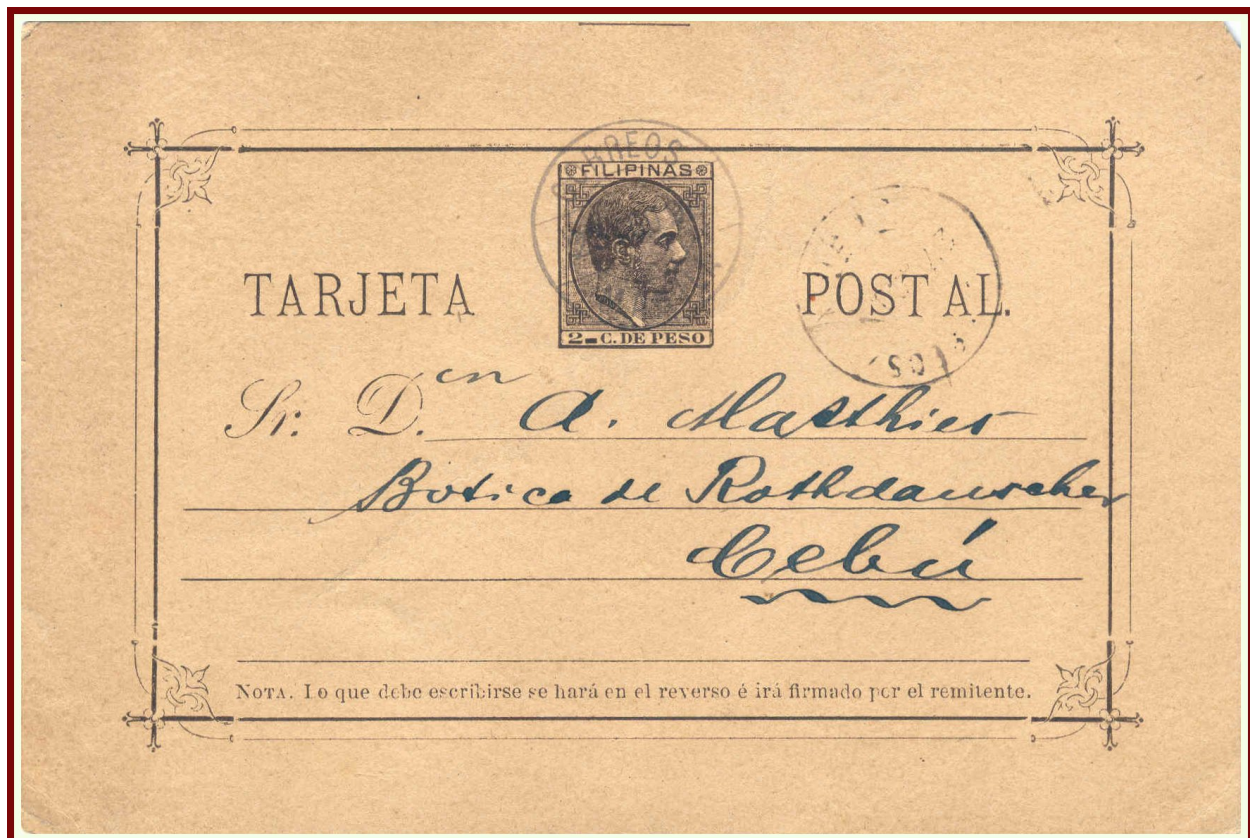 CORREOS
FILIPINAS
TARJETA POSTAL.
2 C. DE PESO
Sr. D.en A. Matthies
Botica de Rothdauscher
Cebú
NOTA. Lo que debe escribirse se hará en el reverso é irá firmado por el remitente.